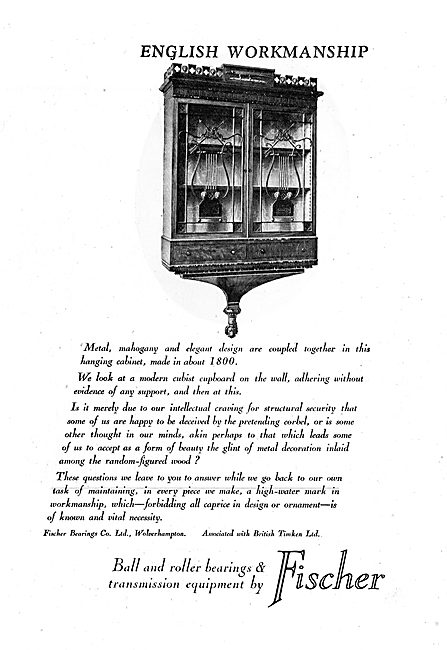 ENGLISH WORKMANSHIP
Metal, mahogany and elegant design are coupled together in this
hanging cabinet, made in about 1800.
We look at a modern cubist cupboard on the wall, adhering without
evidence of any support, and then at this.
Is it merely due to our intellectual craving for structural security that
some of us are happy to be deceived by the pretending corbel, or is some
other thought in our minds, akin perhaps to that which leads some
of us to accept as a form of beauty the glint of metal decoration inlaid
among the random-figured wood ?
These questions we leave to you to answer while we go back to our own
task of maintaining, in every piece we make, a high-water mark in
workmanship, which—forbidding all caprice in design or ornament—is
of known and vital necessity.
Fischer Bearings Co. Ltd., Wolverhampton. Associated with British Timken Ltd.
Ball and roller bearings &
transmission equipment by Fischer